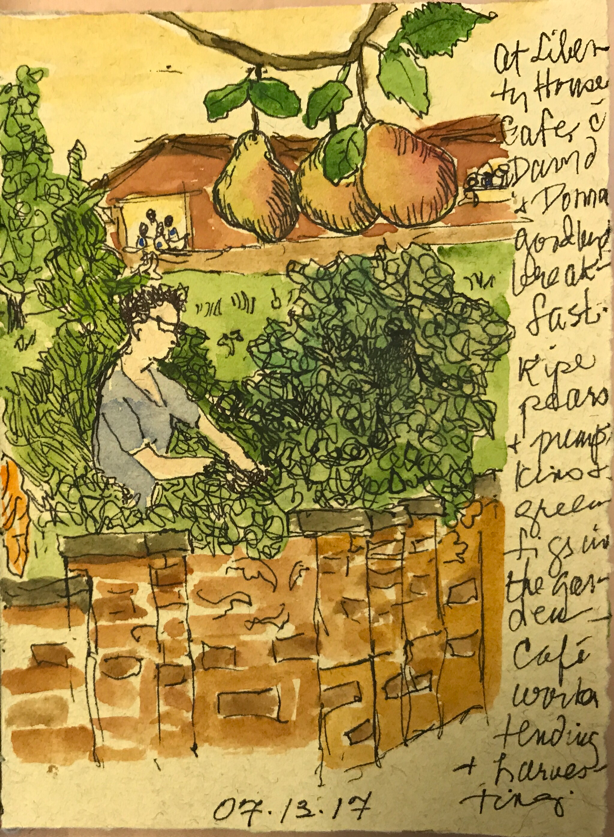 At Liber-
ty House
Cafe, c̄
David
+ Donna
goodbye
break-
fast.
Ripe
pears
+ pump
kins +
green
figs in
the gar-
den –
Café
worka
tending
+ harves-
ting.
07.13.17